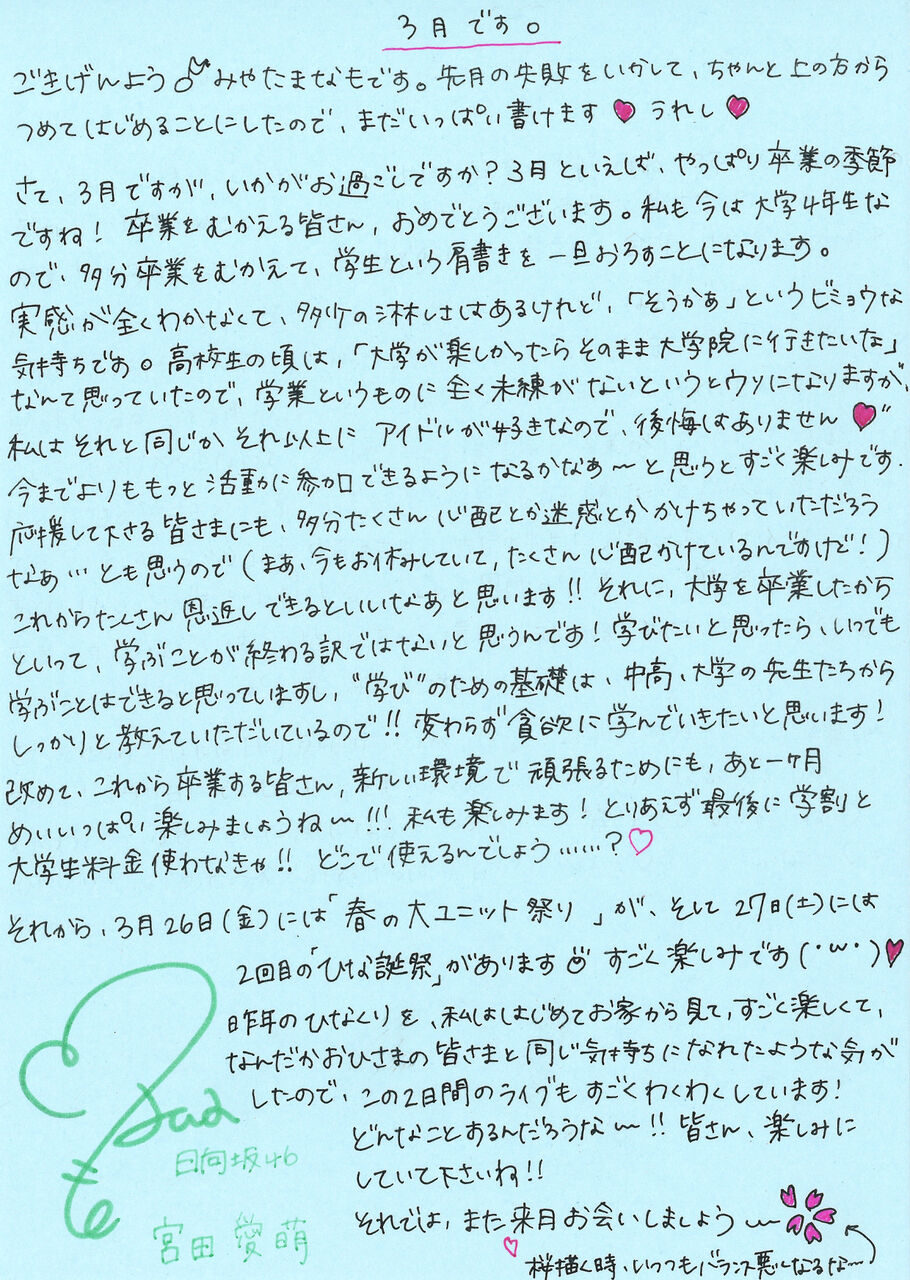 3月です。
ごきげんよう♪みやたまなもです。先月の失敗をいかして、ちゃんと上の方から
つめてはじめることにしたので、まだいっぱい書けます♥うれし♥
さて、3月ですが、いかがお過ごしですか?3月といえば、やっぱり卒業の季節
ですね!卒業をむかえる皆さん、おめでとうございます。私も今は大学4年生な
ので、多分卒業をむかえて、学生という肩書きを一旦おろすことになります。
実感が全くわかなくて、多少の淋しさはあるけれど、「そうかぁ」というビミョウな
気持ちです。高校生の頃は、「大学が楽しかったらそのまま大学院に行きたいな」
なんて思っていたので、学業というものに全く未練がないというとウソになりますが、
私はそれと同じかそれ以上にアイドルが好きなので、後悔はありません♥
今までよりももっと活動に参加できるようになるかなぁ〜と思うとすごく楽しみです.
応援して下さる皆さまにも、多分たくさん心配とか迷惑とかかけちゃっていただろう
なぁ…とも思うので(まあ、今もお休みしていて、たくさん心配かけているんですけど!)
これからたくさん恩返しできるといいなあと思います!!それに、大学を卒業したから
といって、学ぶことが終わる訳ではないと思うんです!学びたいと思ったら、いつでも
学ぶことはできると思っていますし、"学び"のための基礎は、中高、大学の先生たちから
しっかりと教えていただいているので!!変わらず貪欲に学んでいきたいと思います!
改めて、これから卒業する皆さん、新しい環境で頑張るためにも、あと一ヶ月
めいいっぱい楽しみましょうね〜!!!私も楽しみます!とりあえず最後に学割と
大学生料金使わなきゃ!!どこで使えるんでしょう……?♡
それから、3月26日(金)には「春の大ユニット祭り」が、そして27日(土)には
2回目の「ひな誕祭」があります すごく楽しみです(・ω・)♥
昨年のひなくりを、私ははじめてお家から見て、すごく楽しくて、
なんだかおひさまの皆さまと同じ気持ちになれたような気が
したので、この2日間のライブもすごくわくわくしています!
どんなことするんだろうな〜!!皆さん、楽しみに
していて下さいね!!
それでは、また来月お会いしましょう〜
♡桜描く時、いっつもバランス悪くなるな〜
日向坂46
宮田愛萌